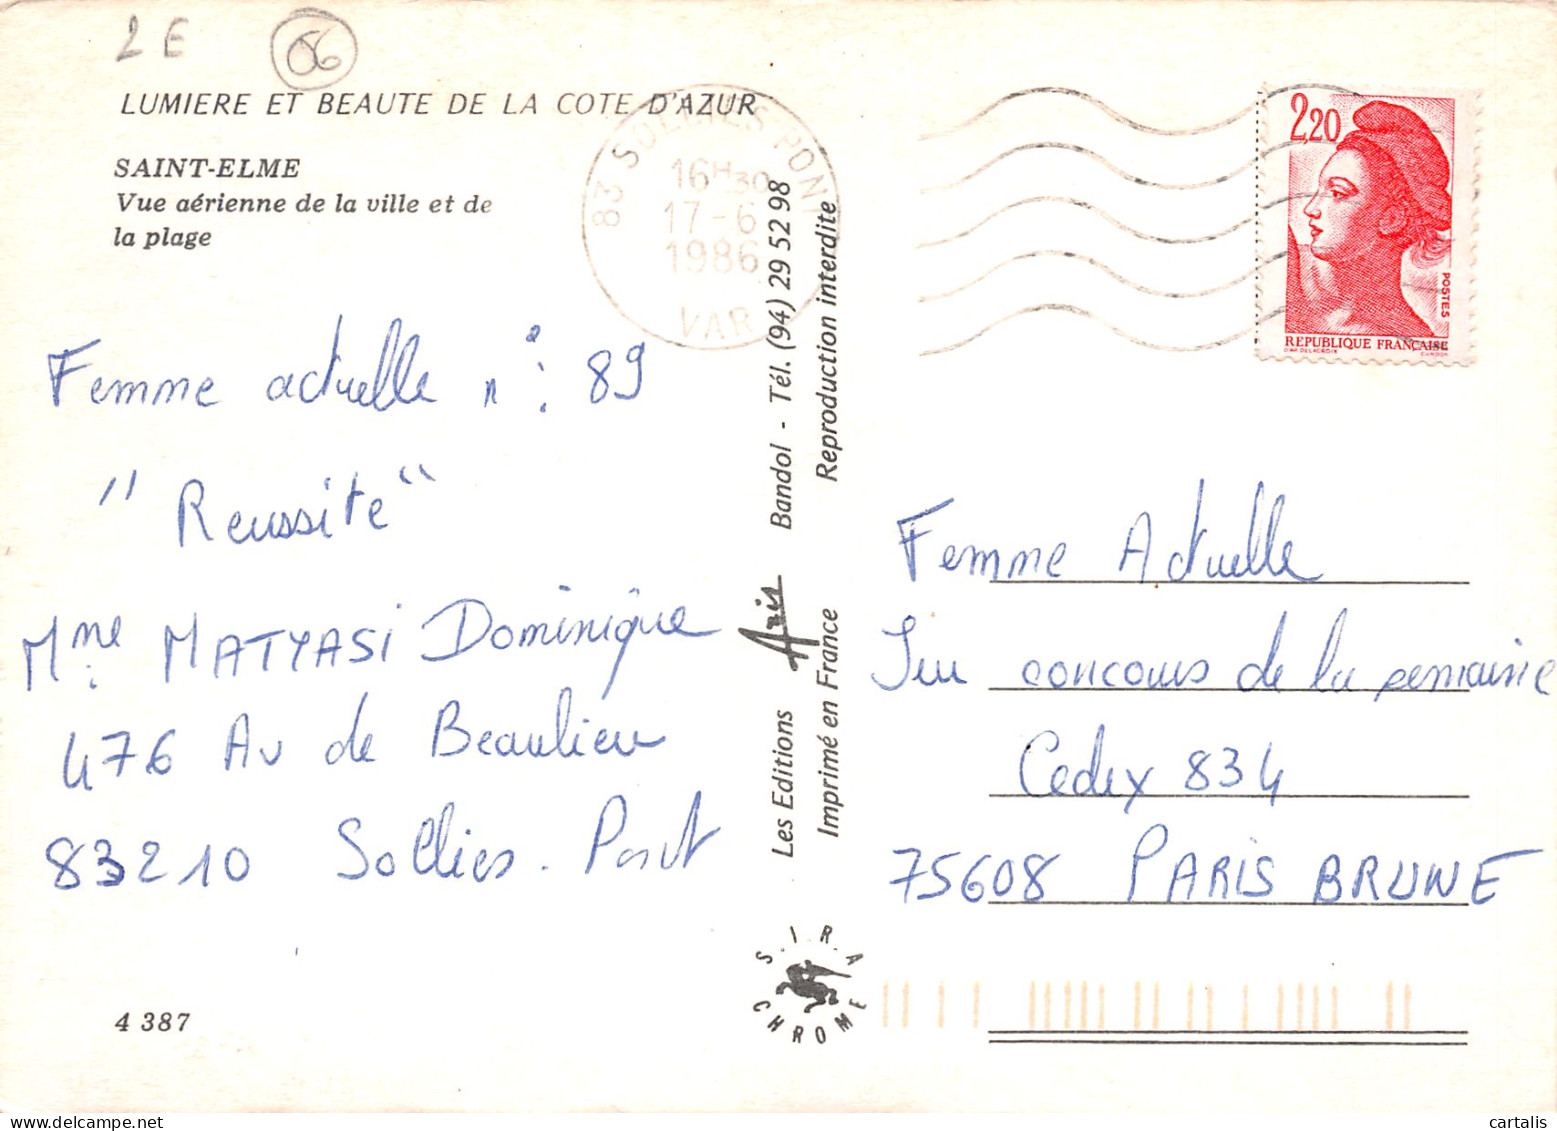 2 E
06
LUMIERE ET BEAUTE DE LA COTE D'AZUR
SAINT-ELME
Vue aérienne de la ville et de
la plage
83 SOLLIES-PONT
16H30
17-6
1986
VAR
2,20
POSTES
REPUBLIQUE FRANÇAISE
D'AP. DELACROIX GANDON
Femme actuelle n°: 89
"Reussite"
Mme MATYASI Dominique
476 Av de Beaulieu
83210 Sollies-Pont
4 387
Les Editions Aris Bandol - Tél. (94) 29 52 98
Imprimé en France Reproduction interdite
S.I.R.A
CHROME
Femme Actuelle
Jeu concours de la semaine
Cedex 834
75608 PARIS BRUNE
cartalis